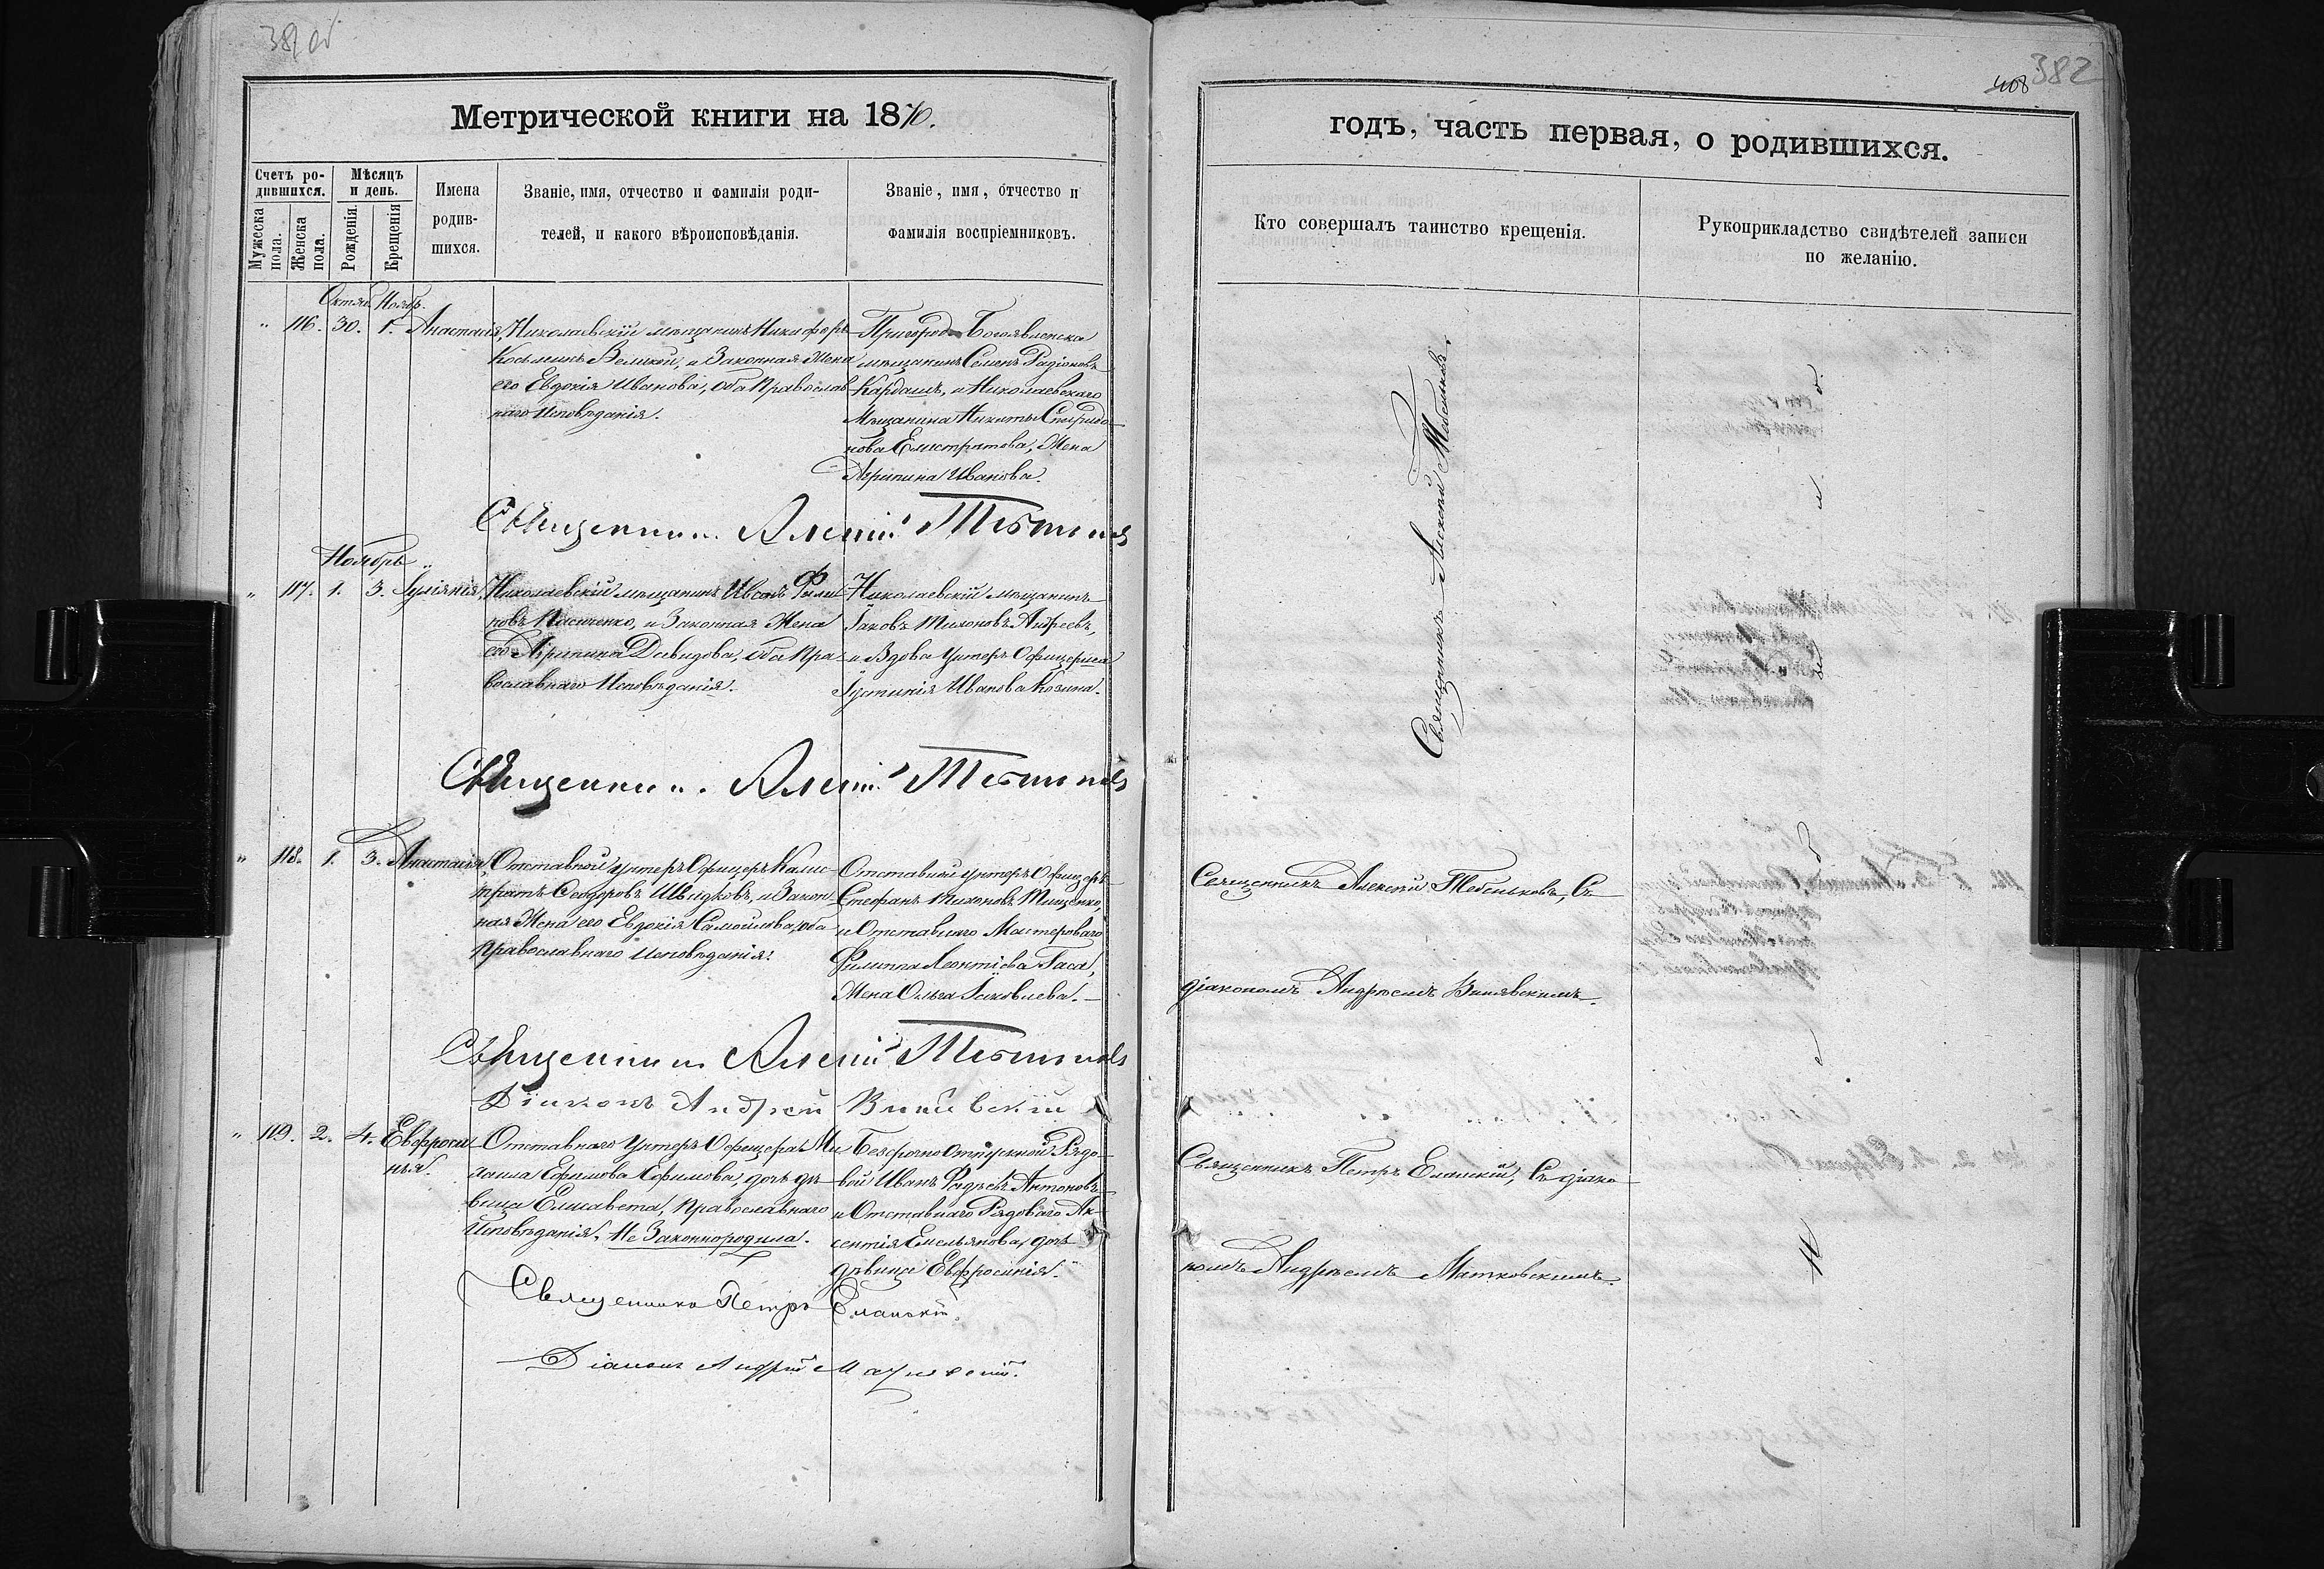 381 об
Метрической книги на 1870.
Счетъ родившихся.
Мѣсяцъ и день.
Мужеска пола.
Женска пола.
Рожденія.
Крещенія
Имена родившихся.
Званіе, имя, отчество и фамилія родителей, и какого вѣроисповѣданія.
Званіе, имя, отчество и фамилія воспріемниковъ.
Октяб. Ноябр.
" 116. 30. 1. Анастасія,
Николаевскій мѣщанинъ Никифоръ
Великой, и Законная Жена
его Евдокія Иванова, оба Православ-
наго Исповѣданія.
Пригорода Богоявленска
мѣщанинъ Семенъ Радіоновъ
Кардашъ, и Николаевскаго
Мѣщанина Никиты Спиридо-
нова Елистратова, Жена
Агрипина Иванова.
Священникъ Алексій
Ноябрь
" 117. 1. 3. Іуліянія,
Николаевскій мѣщанинъ Иванъ Филип-
повъ Пасиченко, и Законная Жена
его Агрипина Давидова, оба Пра-
вославнаго Исповѣданія.
Николаевскій мѣщанинъ
Іаковъ Тихоновъ Андреевъ,
и Вдова Унтеръ Офицерша
Іустинія Иванова Козина.
Священникъ Алексій
" 118. 1. 3. Анастасія,
Отставной Унтеръ Офицеръ Калис-
тратъ Феодоровъ Швидковъ, и Закон-
ная Жена его Евдокія Самойлова, оба
Православнаго Исповѣданія.
Отставной унтеръ Офицеръ
Стефанъ Тихоновъ Тищенко,
и Отставнаго Мастероваго
Филиппа Леонтіева Гаса,
Жена Ольга Іаковлева.
Священникъ Алексій
Діаконъ Андрей
" 119. 2. 4. Евфроси-
нія.
Отставнаго Унтеръ Офицера Ми-
хаила Ефимова Ефимова, дочь дѣ-
вица Елисавета, Православнаго
Исповѣданія, Не Законнорожденная.
Безсрочно отпускной Рядо-
вой Иванъ Фадѣевъ Антоновъ
и Отставнаго Рядоваго Ак-
сентія Емельянова, дочь
дѣвица Евфросинія.
Священникъ Петръ Еланскій
Діаконъ Андрей
408 382
годъ, часть первая, о родившихся.
Кто совершалъ таинство крещенія.
Рукоприкладство свидѣтелей записи по желанію.
Священникъ Алексій Тебеньковъ.
Священникъ Алексій Тебеньковъ, Съ
діакономъ Андреемъ
Священникъ Петръ Еланскій, Съ діако-
номъ Андреемъ Матковскимъ.